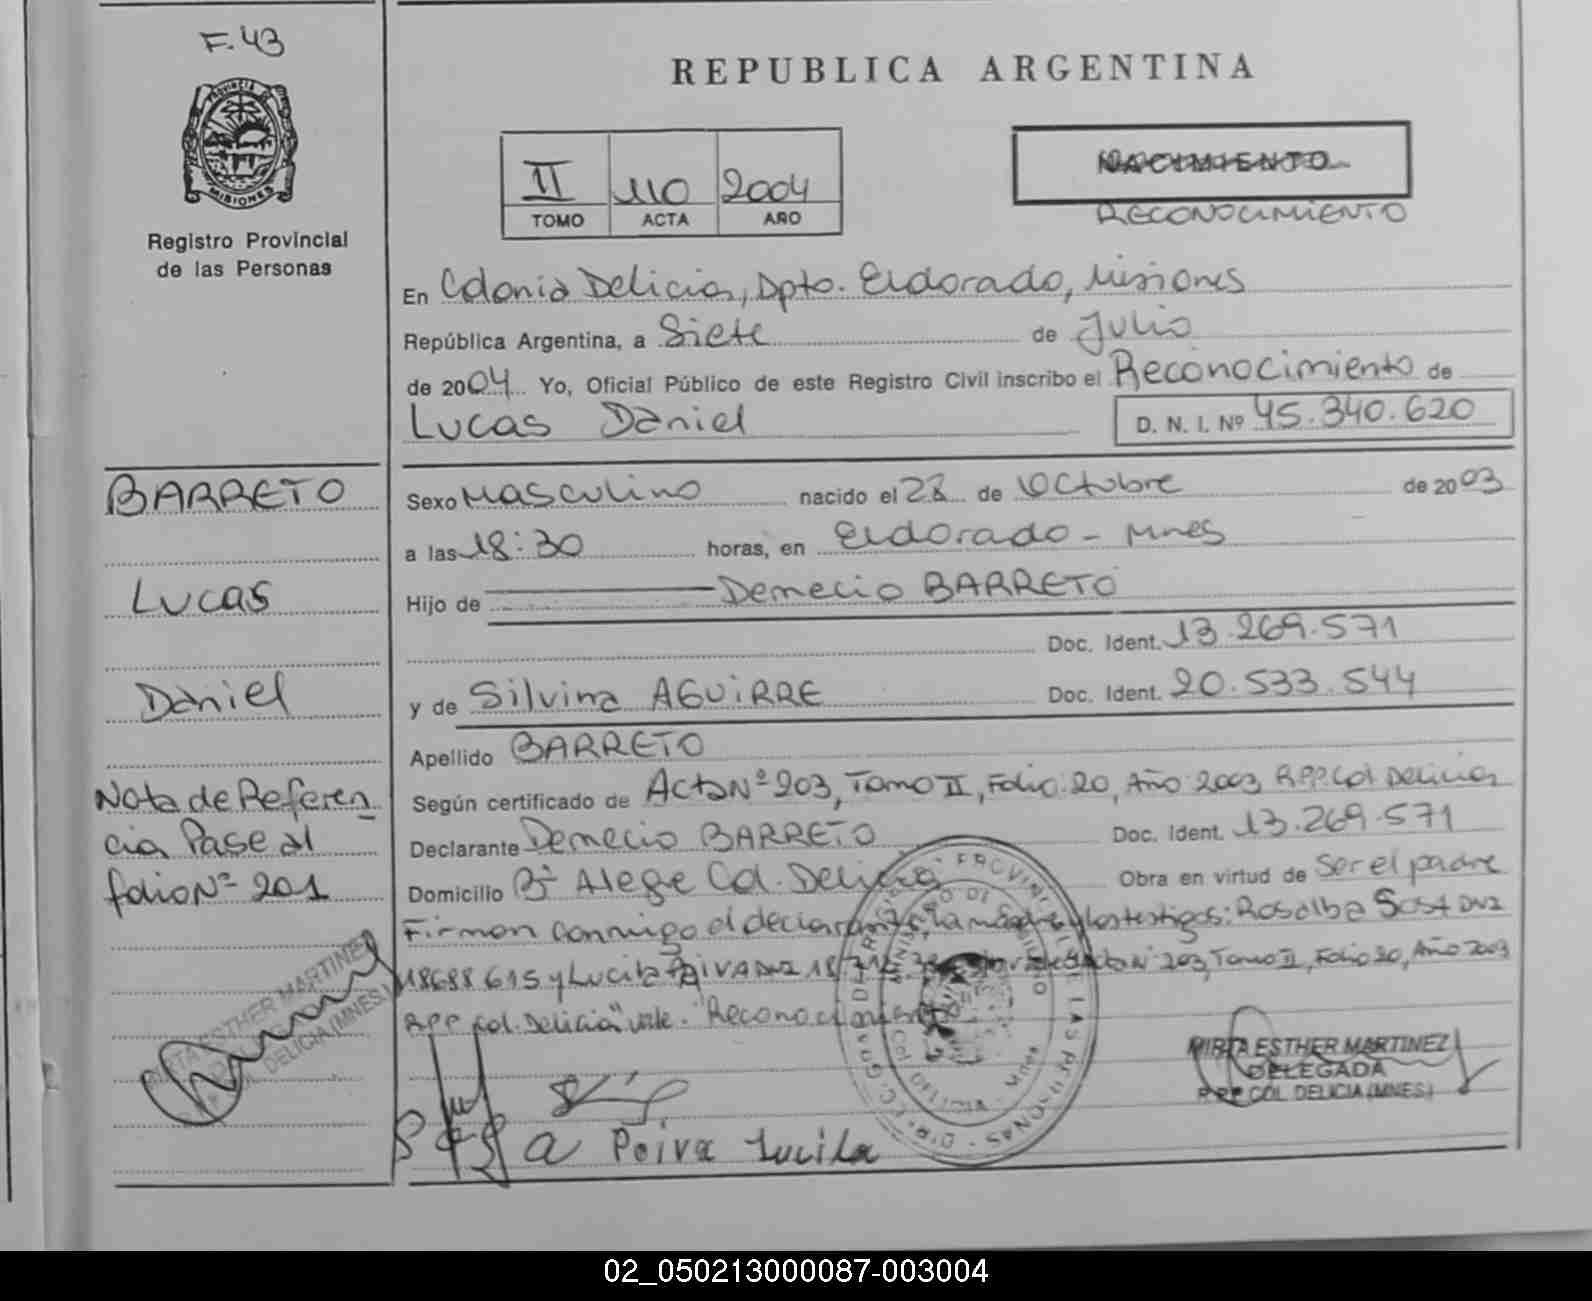 F. 43
PROVINCIA DE
MISIONES
Registro Provincial
de las Personas
REPUBLICA ARGENTINA
II 110 2004
TOMO ACTA AÑO
NACIMIENTO
RECONOCIMIENTO
En Colonia Delicia, Dpto. Eldorado, Misiones
República Argentina, a Siete de Julio
de 2004 Yo, Oficial Público de este Registro Civil inscribo el Reconocimiento de
Lucas Daniel
D. N. I. Nº 45.340.620
BARRETO
Lucas
Daniel
Nota de Referen
cia Pase al
folio Nº 201
Sexo Masculino nacido el 28 de Octubre de 2003
a las 18:30 horas, en Eldorado - Mnes
Hijo de Demecio BARRETO
Doc. Ident. 13.269.571
y de Silvina AGUIRRE Doc. Ident. 20.533.544
Apellido BARRETO
Según certificado de Acta Nº 203, Tomo II, Folio 20, Año 2003, RPP. Col Delicia
Declarante Demecio BARRETO Doc. Ident. 13.269.571
Domicilio Bº Alegre Col. Delicia Obra en virtud de Ser el padre
Firman conmigo el declarante, la madre y los testigos: Rosalba Sosa DNI
18688615 y Lucila PAIVA DNI 18 203, Tomo II, Folio 20, Año 2003
RPP. Col. Delicia" vale. "Reconocimiento"
MIRTA ESTHER MARTINEZ
DELEGADA
R.P.P. COL. DELICIA (MNES.)
MIRTA ESTHER MARTINEZ
DELICIA (MNES.)
Sosa Peiva Lucila
02_050213000087-003004